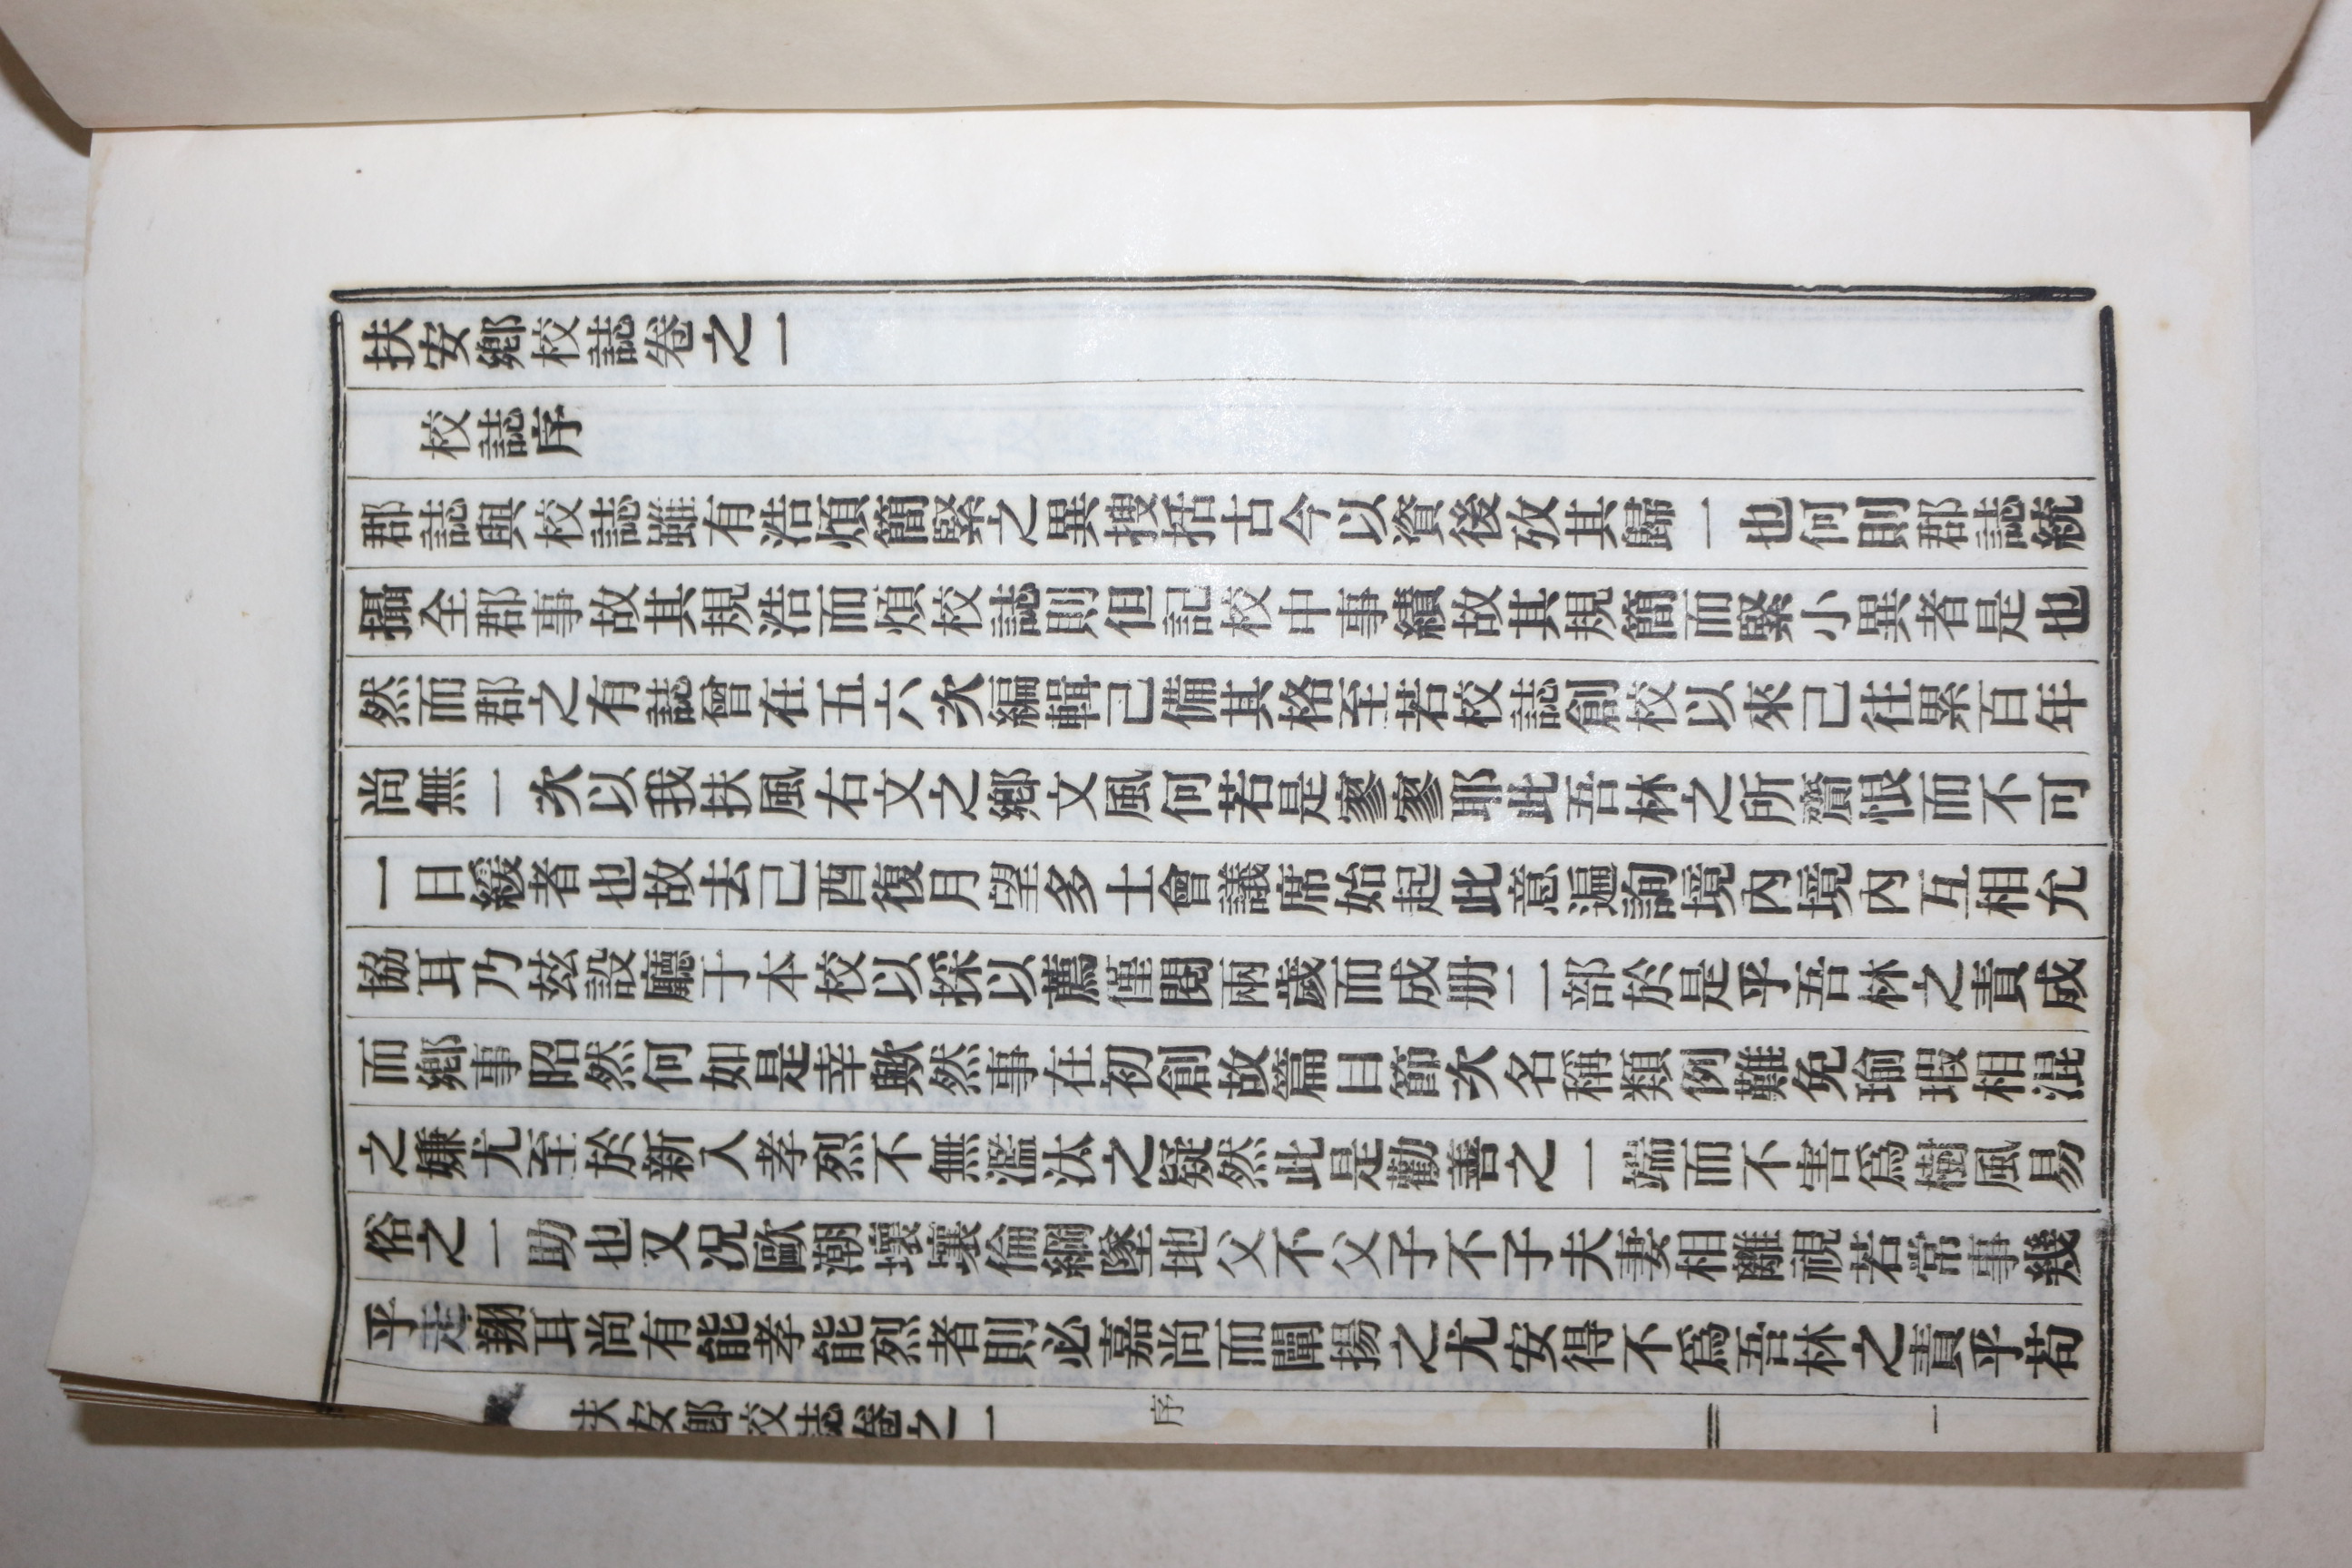 扶安鄕校誌卷之一
校誌序
郡誌與校誌雖有浩煩簡緊之異搜括古今以資後攷其歸一也何則郡誌統
攝全郡事故其規浩而煩校誌則但記校中事績故其規簡而緊小異者是也
然而郡之有誌曾在五六次編輯己備其格至若校誌創校以來己往累百年
尚無一次以我扶風右文之鄕文風何若是寥寥耶此吾林之所齎恨而不可
一日緩者也故去己酉復月望多士會議席始起此意遍詢境內境內互相允
協耳乃玆設廳于本校以採以薦僅閱兩歲而成册二部於是乎吾林之責成
而鄕事昭然何如是幸歟然事在初創故篇目節次名稱類例難免瑜瑕相混
之嫌尤至於新入孝烈不無濫汰之疑然此是勸善之一端而不害爲樹風易
俗之一助也又况歐潮壞壤倫綱墜地父不父子不子夫妻相離視若常事幾
乎走翔耳尚有能孝能烈者則必嘉尚而闡揚之尤安得不爲吾林之責乎苟
扶安鄕校誌卷之一 序 一